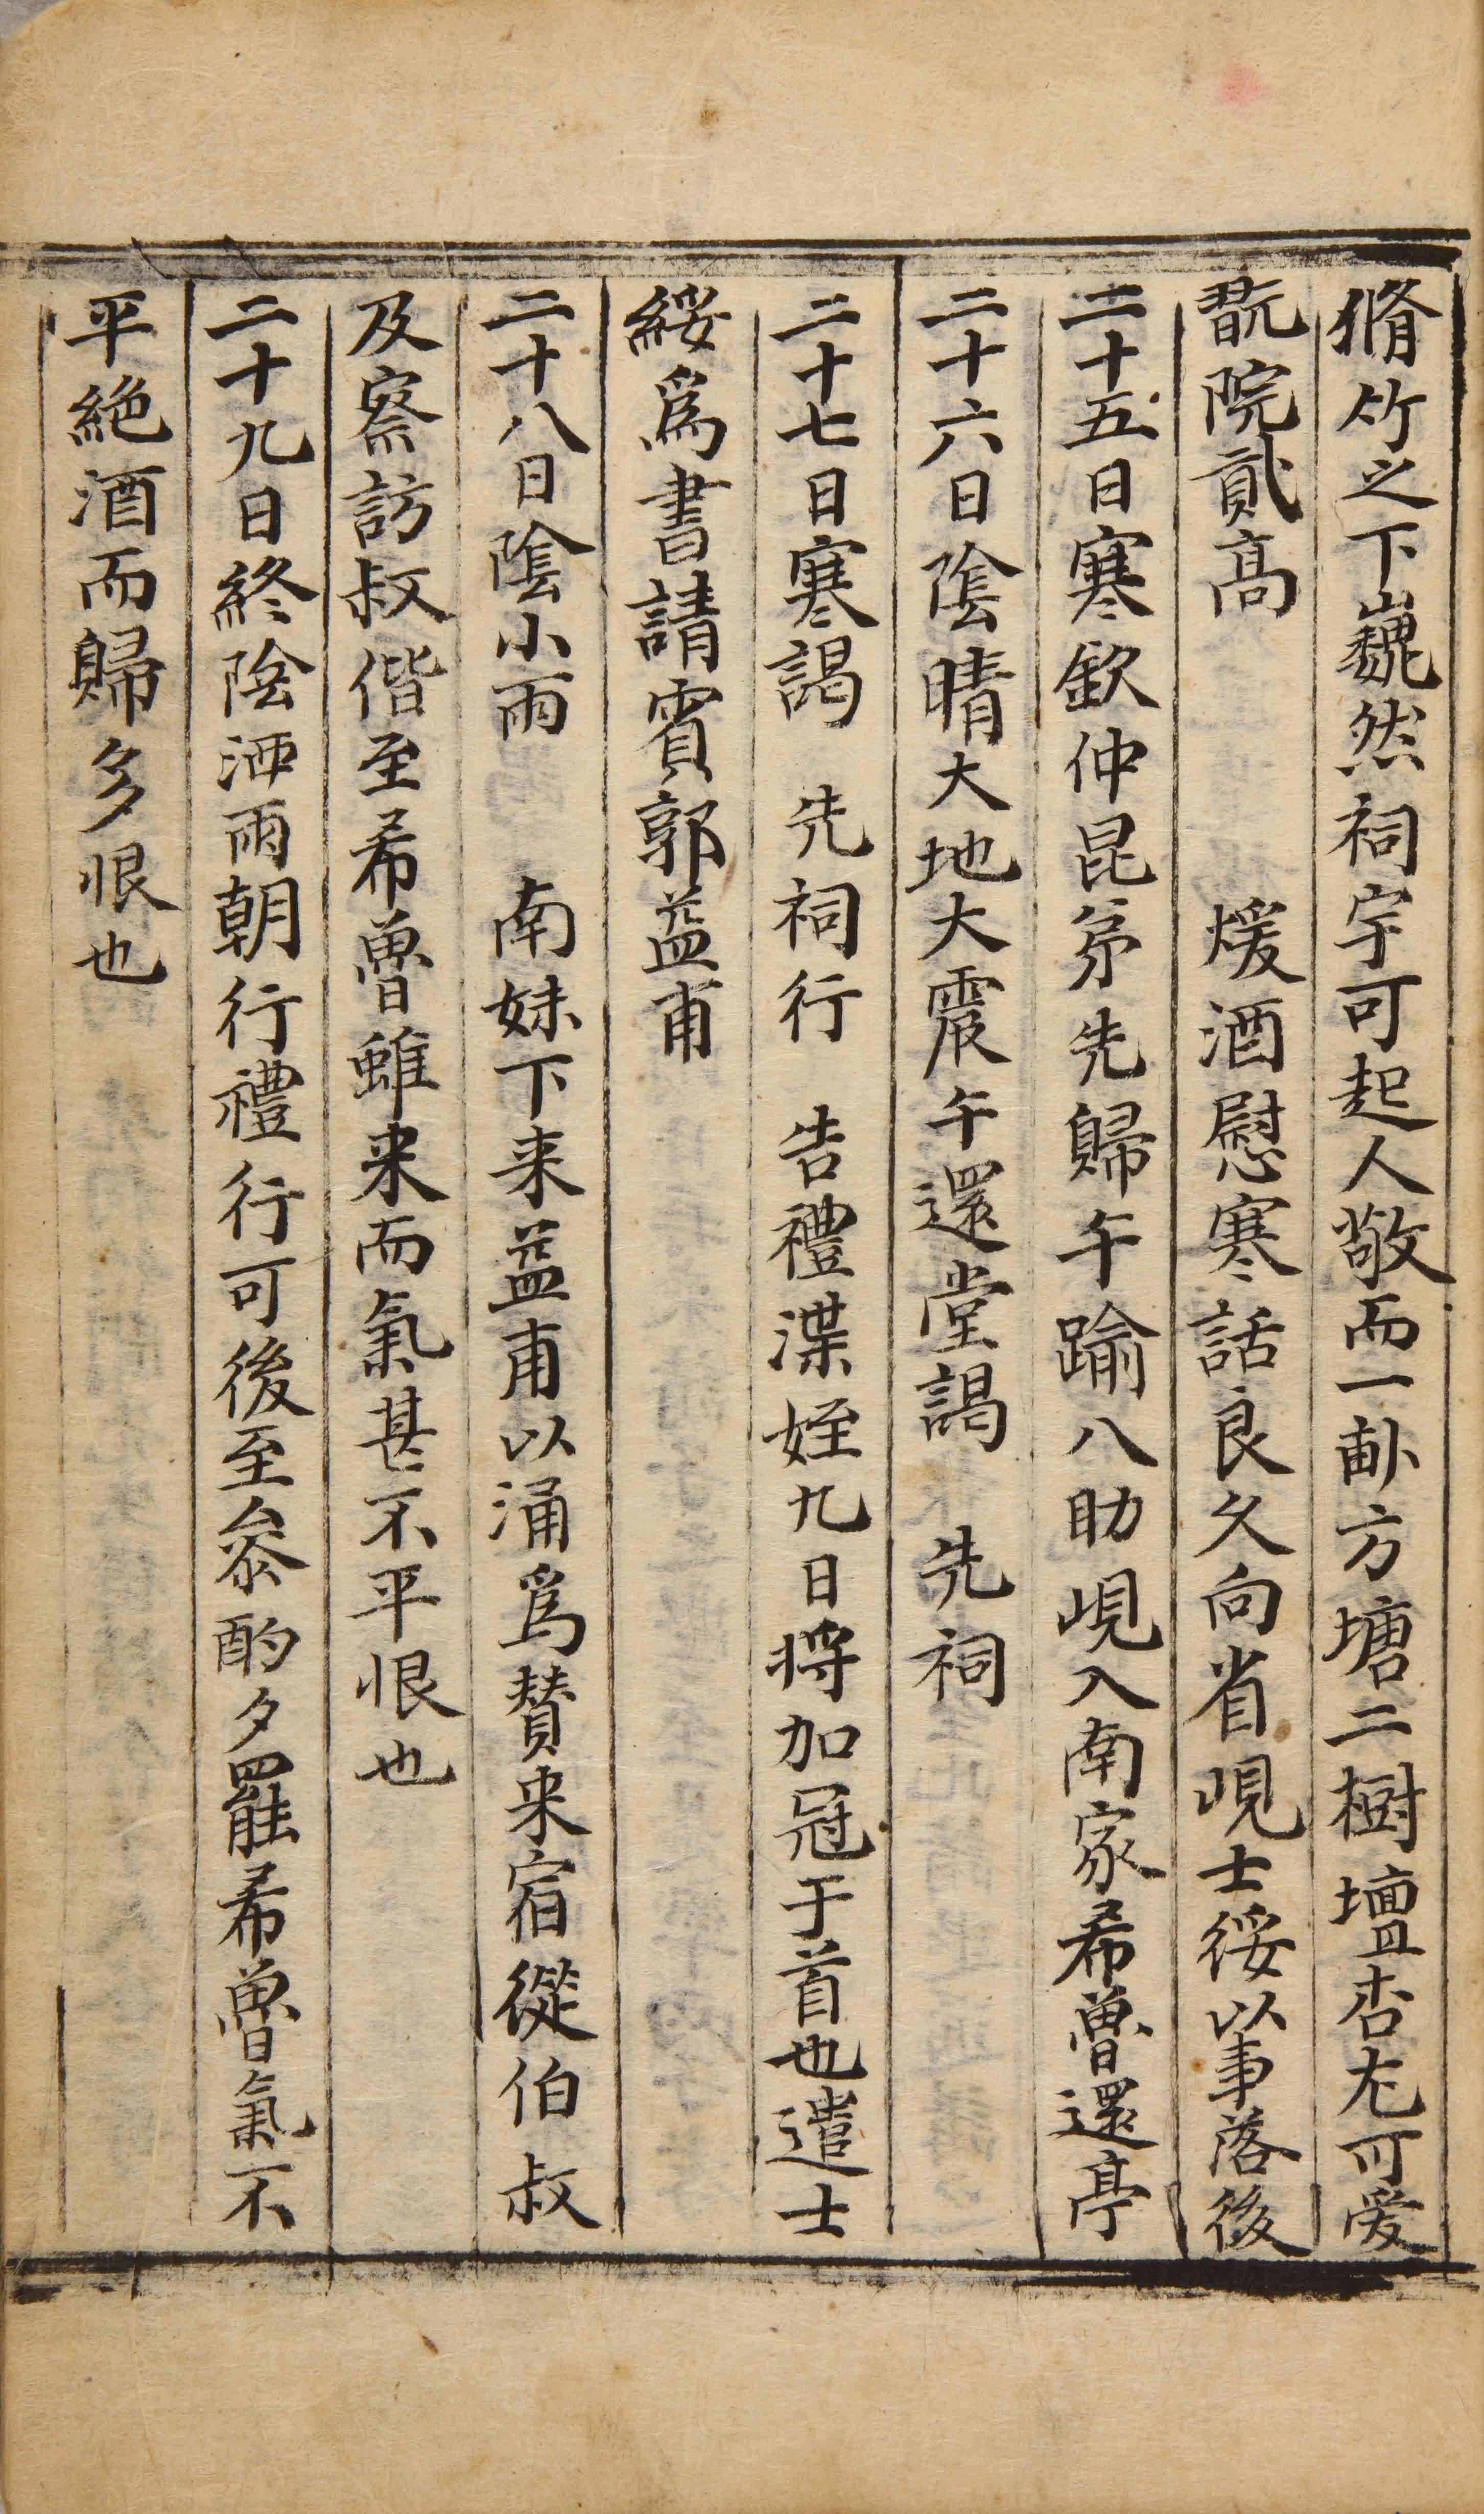 脩竹之下巍然祠宇可起人敬而一畝方塘二樹壇杏尤可爱
翫院貳高 煖酒慰寒話良久向省峴士綏以事落後
二十五日寒欽仲昆弟先歸午踰八助峴入南家希魯還亭
二十六日陰晴大地大震午還堂謁 先祠
二十七日寒謁 先祠行 告禮渫姪九日将加冠于首也遣士
綏爲書請賓郭益甫
二十八日陰小雨 南妹下来益甫以涌爲賛来宿從伯叔
及察訪叔偕至希魯雖来而氣甚不平恨也
二十九日終陰洒雨朝行禮行可後至叅酌夕罷希魯氣不
平絶酒而歸多恨也